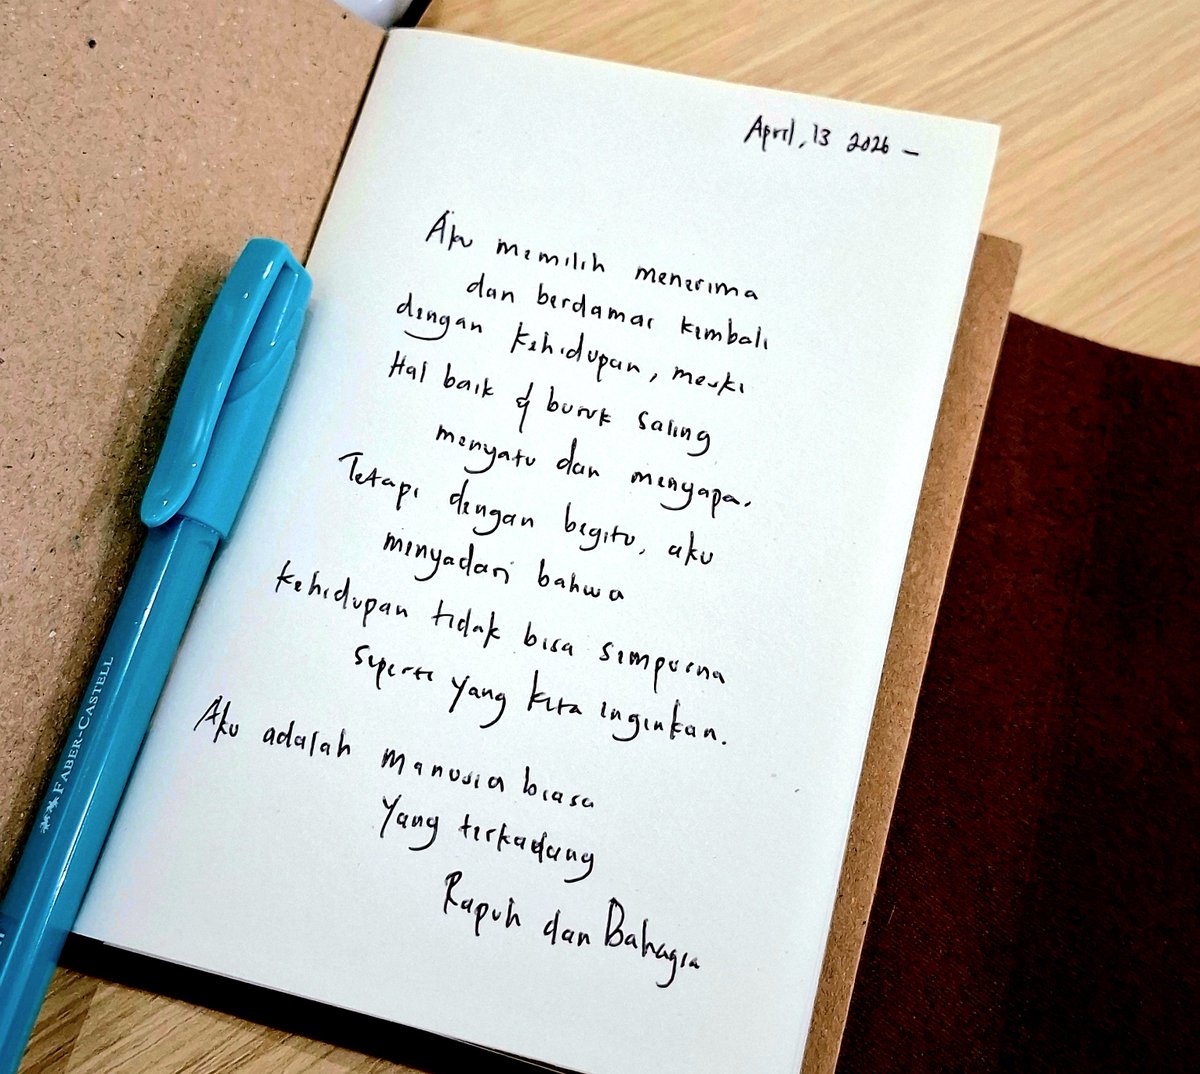 April, 13 2026 –
Aku memilih menerima
dan berdamai kembali
dengan kehidupan, meski
Hal baik & buruk saling
menyatu dan menyapa.
Tetapi dengan begitu, aku
menyadari bahwa
kehidupan tidak bisa sempurna
seperti yang kita inginkan.
Aku adalah manusia biasa
yang terkadang
Rapuh dan Bahagia
FABER-CASTELL